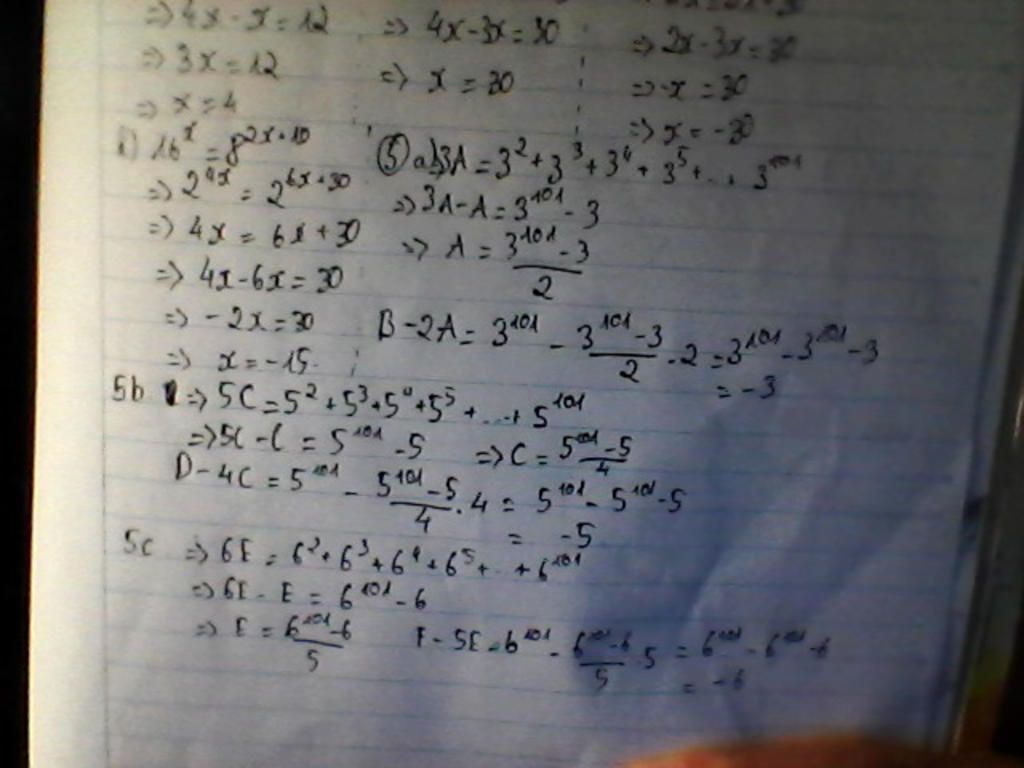 => 4x - x = 12
=> 3x = 12
=> x = 4
=> 4x - 3x = 30
=> x = 30
=> 2x - 3x = 30
=> -x = 30
=> x = -30
16^x = 8^{2x+10}
=> 2^{4x} = 2^{6x+30}
=> 4x = 6x + 30
=> 4x - 6x = 30
=> -2x = 30
=> x = -15.
⑤ a) 3A = 3^2 + 3^3 + 3^4 + 3^5 + ... + 3^{101}
=> 3A - A = 3^{101} - 3
=> A = \frac{3^{101} - 3}{2}
B - 2A = 3^{101} - \frac{3^{101} - 3}{2} . 2 = 3^{101} - 3^{101} - 3
= -3
5b => 5C = 5^2 + 5^3 + 5^4 + 5^5 + ... + 5^{101}
=> 5C - C = 5^{101} - 5 => C = \frac{5^{101} - 5}{4}
D - 4C = 5^{101} - \frac{5^{101} - 5}{4} . 4 = 5^{101} - 5^{101} - 5
= -5
5c => 6E = 6^2 + 6^3 + 6^4 + 6^5 + ... + 6^{101}
=> 6E - E = 6^{101} - 6
=> E = \frac{6^{101} - 6}{5} F - 5E = 6^{101} - \frac{6^{101} - 6}{5} . 5 = 6^{101} - 6^{101} - 6
= -6